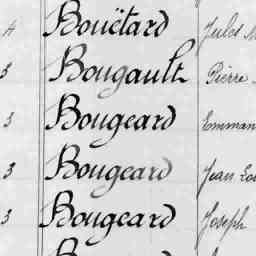 4 Bouëtard Jules
3 Bougault Pierre
3 Bougeard Emman
3 Bougeard Jean Lou
3 Bougeard Joseph